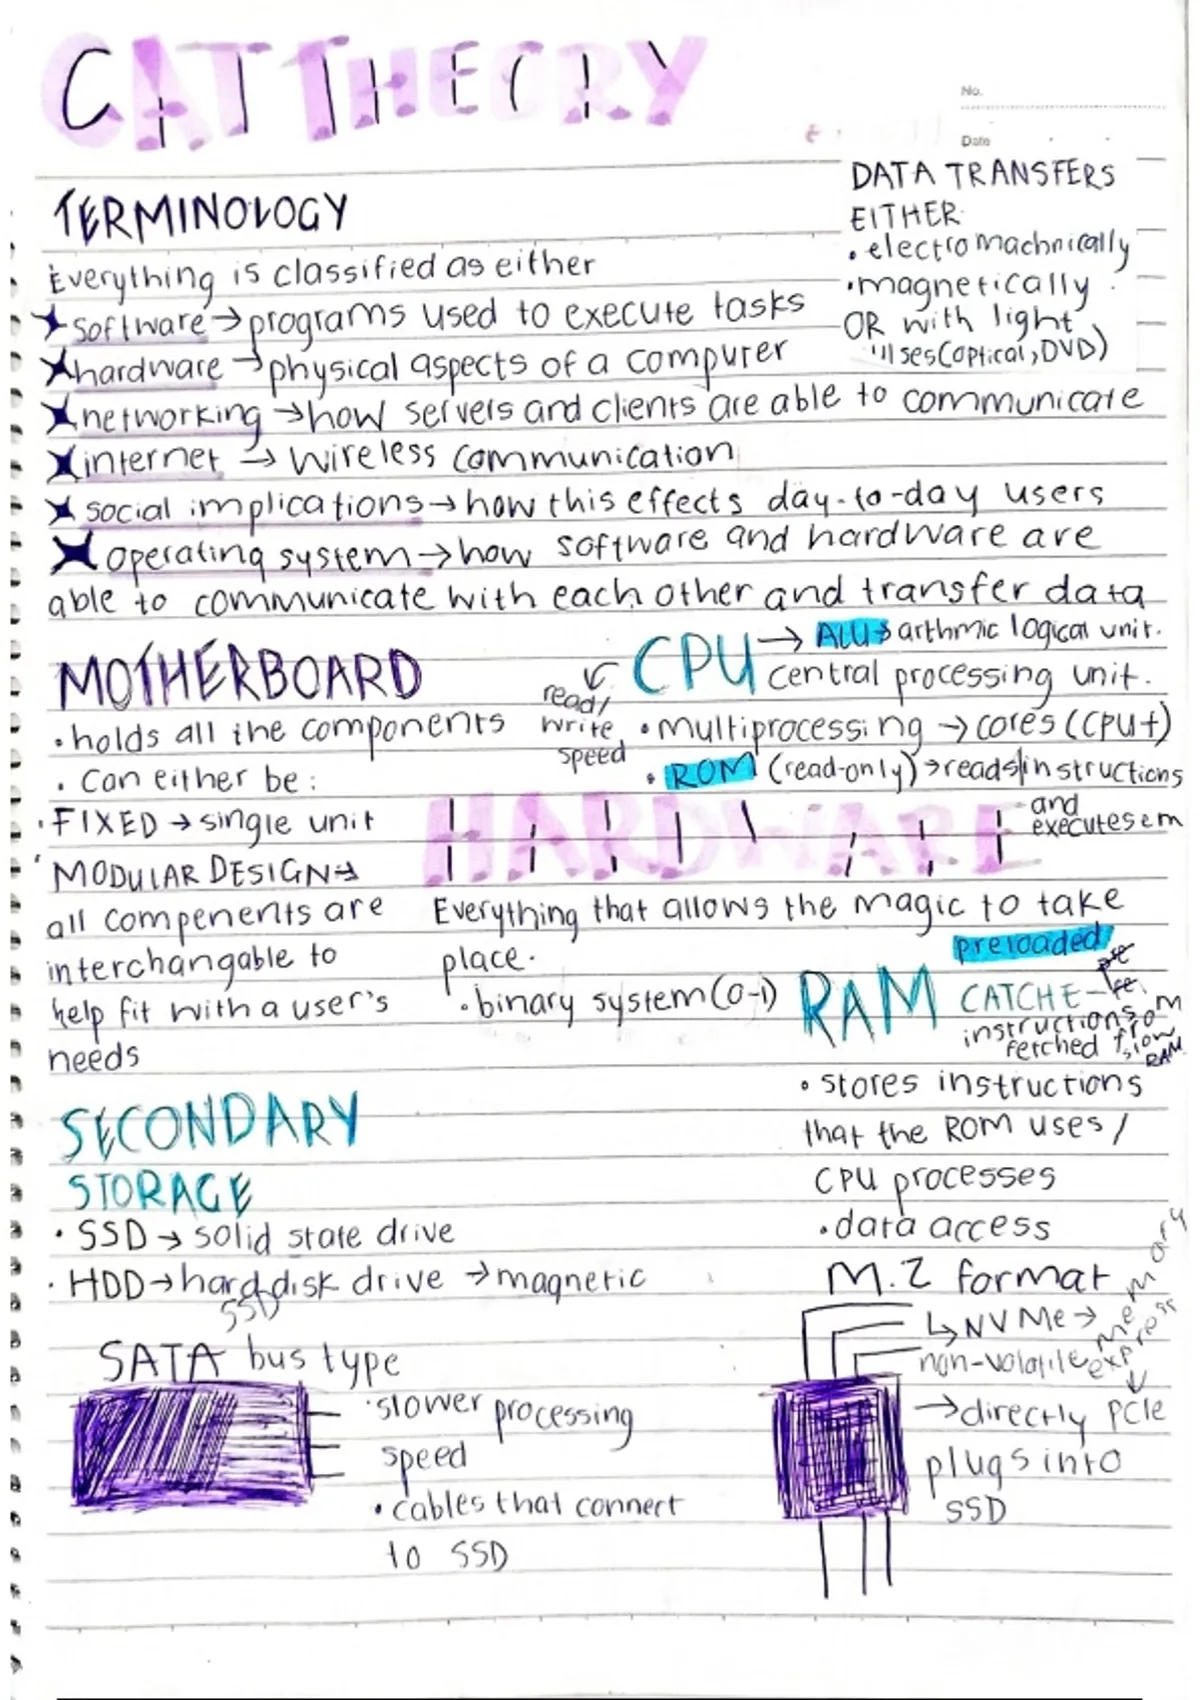 CAT THEORY
No.
Date
TERMINOLOGY
Everything is classified as either
software → programs used to execute tasks
hardware → physical aspects of a computer
networking → how servers and clients are able to communicate
internet → wireless communication
social implications → how this effects day-to-day users
operating system → how software and hardware are
able to communicate with each other and transfer data
DATA TRANSFERS
EITHER:
• electromachnically
• magnetically
OR with light
ses(optical, DVD)
MOTHERBOARD
• holds all the components
• Can either be:
• FIXED → single unit
MODULAR DESIGN →
all compenents are
interchangable to
help fit with a user's
needs
CPU → ALU → arthmic logical unit.
central processing unit.
read/
write
speed
• multiprocessing → cores (CPU+)
• ROM (read-only) → reads instructions
and
executes em
HARDWARE
Everything that allows the magic to take
place.
• binary system (0-1)
preloaded
RAM
CATCHE -
instructions
fetched from
slow
RAM
• stores instructions
that the ROM uses /
CPU processes
• data access
SECONDARY
STORAGE
• SSD → solid state drive
• HDD → hard disk drive → magnetic
SSD
SATA bus type
• slower processing
speed
• cables that connect
to SSD
M.2 format
↳ NVMe →
non-volatile memory
express
↓
→ directly PCIe
plugs into
SSD